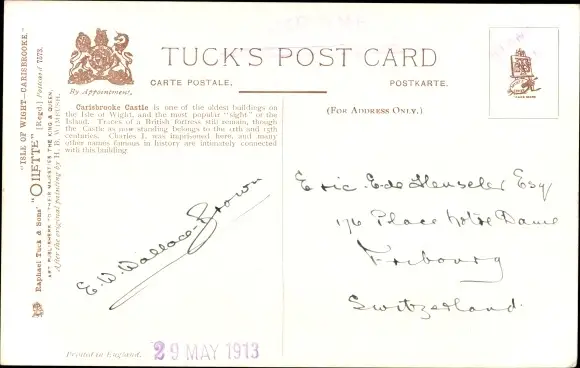 "ISLE OF WIGHT—CARISBROOKE."
Raphael Tuck & Sons' "OILETTE" [Regd.] Postcard 7373.
ART PUBLISHERS TO THEIR MAJESTIES THE KING & QUEEN.
After the original painting by H. B. WIMBUSH.
By Appointment.
TUCK'S POST CARD
CARTE POSTALE.
POSTKARTE.
Carisbrooke Castle is one of the oldest buildings on
the Isle of Wight, and the most popular "sight" of the
Island. Traces of a British fortress still remain, though
the Castle as now standing belongs to the 11th and 15th
centuries. Charles I. was imprisoned here, and many
other names famous in history are intimately connected
with this building
(FOR ADDRESS ONLY.)
E. W. Wallace-Brown
Eric E de Heuseler Esq
Place Notre Dame
Fribourg
Switzerland.
Printed in England.
29 MAY 1913